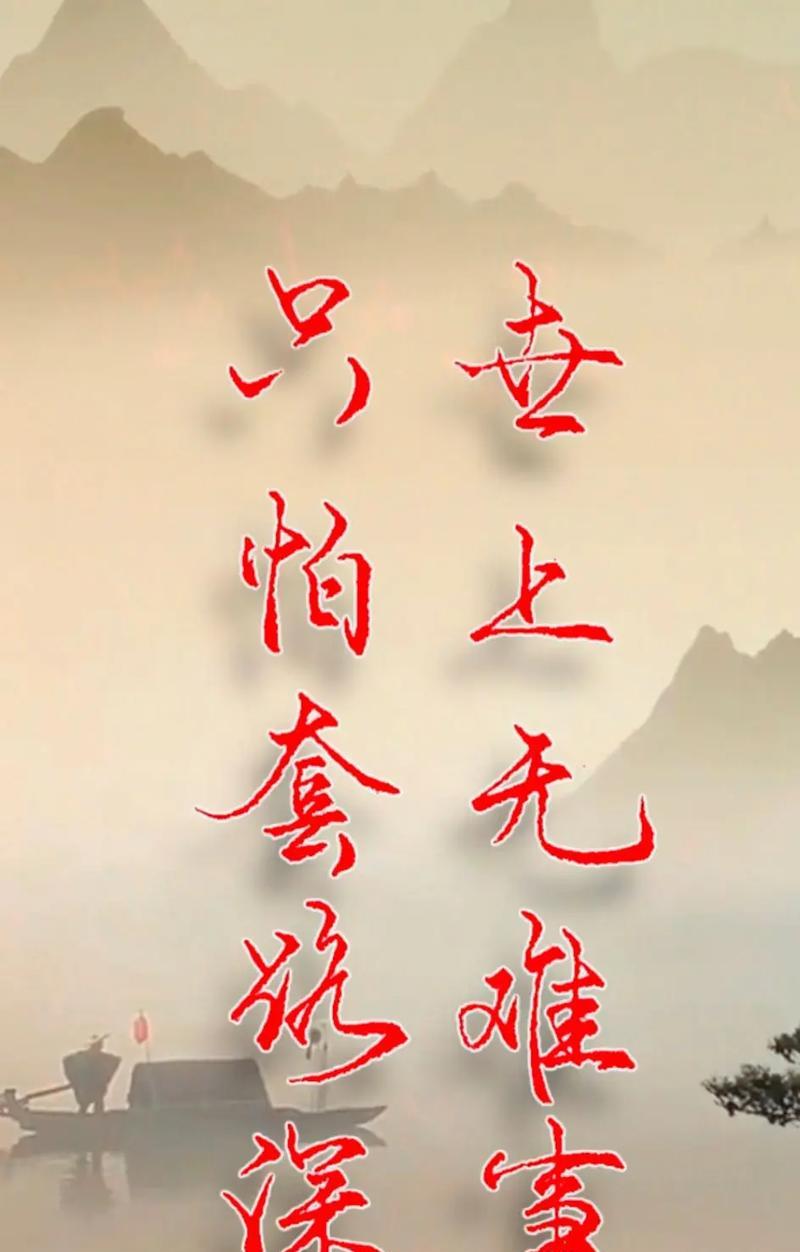 世上无难事
只怕套路深